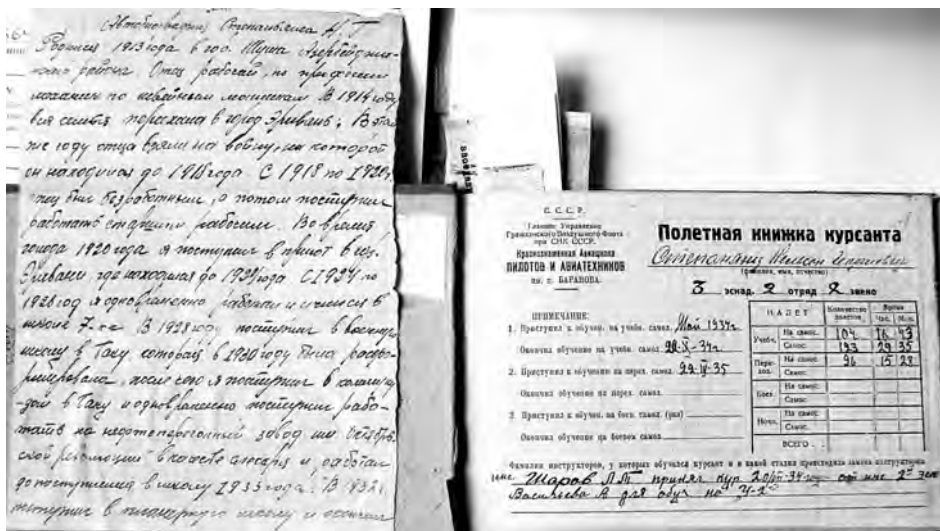 (Автобиография) Степаняниса Н. Г
Родился 1913 года в гор. Шуша Азербейджан-
ского района. Отец рабочий, по профессии
механик по швейным машинкам. В 1914 году
вся семья переехала в город Эривань; В этом
же году отца взяли на войну, на которой
он находился до 1918 года. С 1918 по 1920 г.
отец был безработным, а потом поступил
работать старшим рабочим. Во время
голода 1920 года я поступил в приют в гор.
Эривани где находился до 1924 года. С 1924 по
1928 год я одновременно работал и учился в
школе 7-ке. В 1928 году поступил в
школу в Баку, которая в 1930 году была расфор-
мирована, после чего я поступил в
в Баку и одновременно поступил рабо-
тать на нефтеперегонный завод им. Октябрь-
ской революции в качестве слесаря и работал
до поступления в школу 1933 года. В 1932 г.
поступил в планерную школу и окончил
С.С.С.Р.
Главное Управление
Гражданского Воздушного Флота
при СНК СССР.
Краснознаменная Авиашкола
ПИЛОТОВ И АВИАТЕХНИКОВ
им. п. БАРАНОВА.
Полетная книжка курсанта
Степанянц Нельсон Георгиевич
(фамилия, имя, отчество)
3 эскад. 2 отряд 2 звено
ПРИМЕЧАНИЕ:
1. Приступил к обучен. на учебн. самол. Май 1934 г.
Окончил обучение на учебн. самол. 22-X-34 г.
2. Приступил к обучению на перех. самол. 22-IV-35
Окончил обучение на перех. самол.
3. Приступил к обучен. на боев. самол. (раз)
Окончил обучение на боевом самол.
НАЛЕТ Количество полетов Время
Час. Мин.
Учебн. На самос. 104 16 43
Самос. 193 29 35
Перехо. На самос. 96 15 28
Самос.
Боев. На самос.
Самос.
Ночн. На самос.
Самос.
ВСЕГО
Фамилии инструкторов, у которых обучался курсант и в какой стадии происходила замена инструктора
инс. Шаров Л.П принял кур 20/VII-34 году от инс 2го зве
Васильева А для обуч на У-2